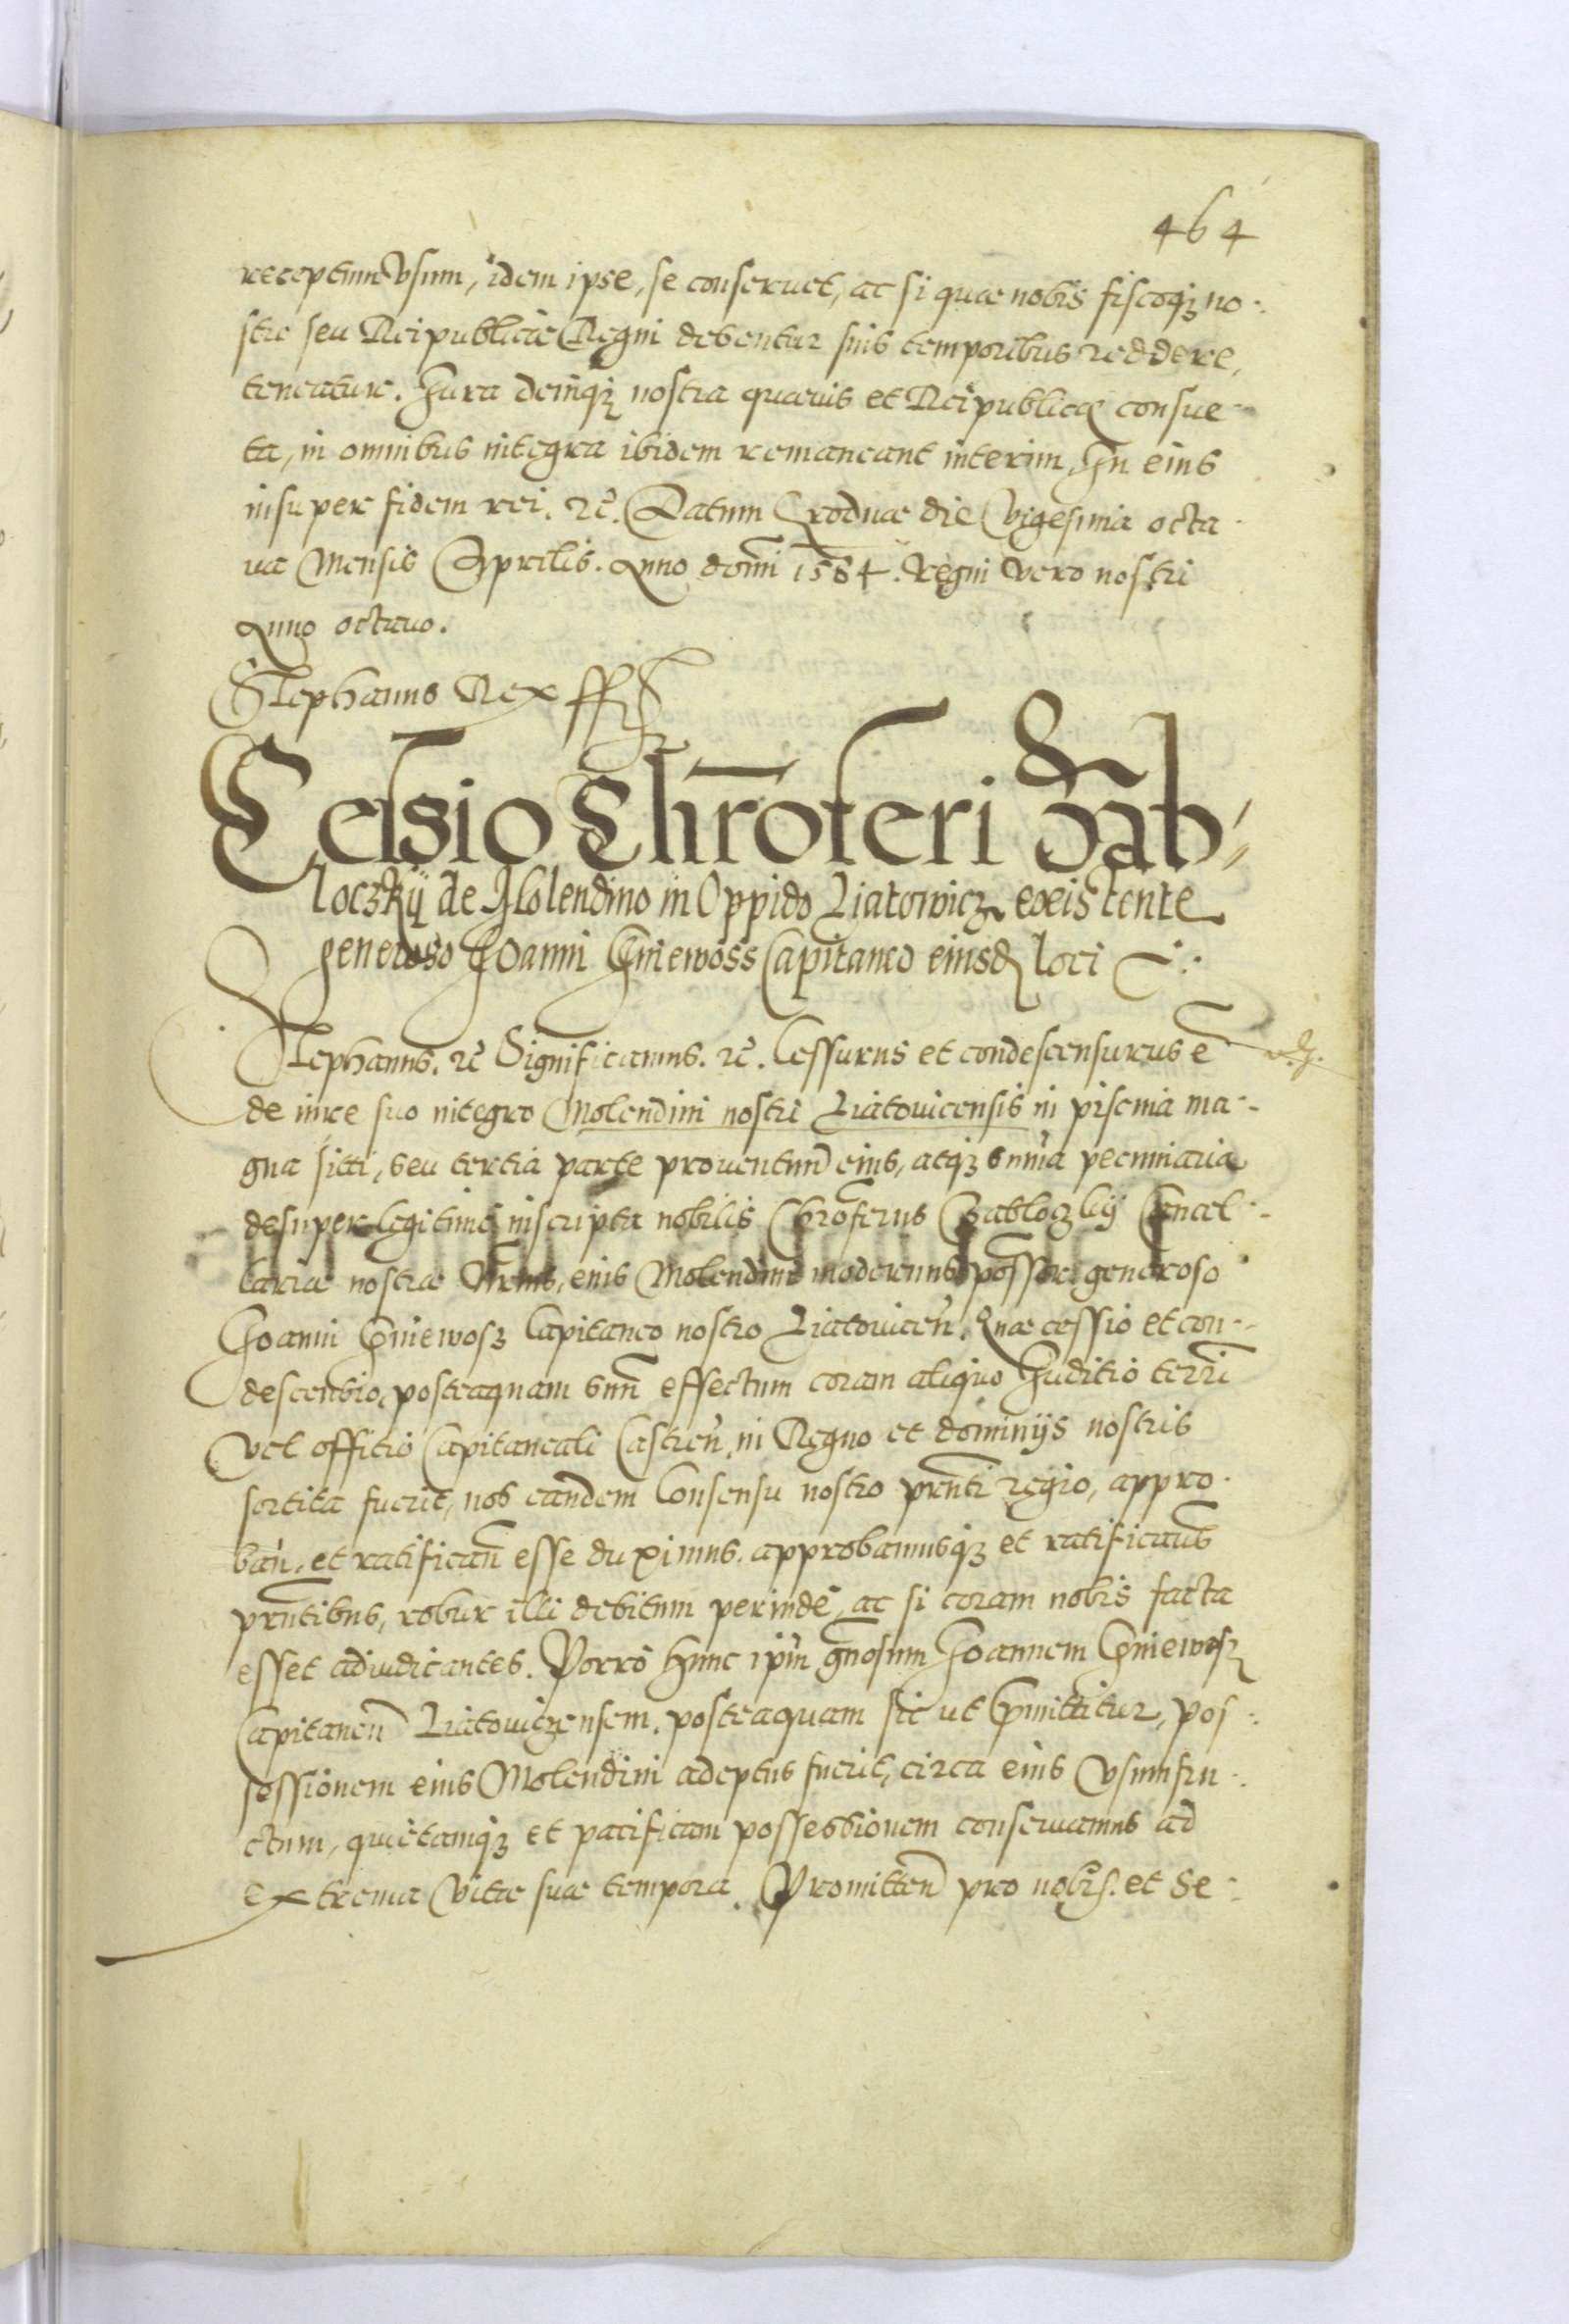 464
receptum Vsum, idem ipse, se conseruet, ac si quae nobis fiscoqȝ no-
stro seu Reipublicae Regni debentur suis temporibus reddere,
teneatur. Jura deniqȝ nostra quaeuis et Reipublicae consue-
ta, in omnibus integra ibidem remaneant interim, In eius
insuper fidem rei. ꝛc̃. Datum Grodnae die Vigesima octa-
ua Mensis Aprilis. Anno domĩ 1584. Regni vero nostri
Anno octauo.
Stephanus Rex ssst
Cessio Chrõferi Zab-
loczkÿ de Molendino in Oppido Liatowicz existente
generoso Joanni Gniewoss Capitaneo eiusdꝫ loci
Stephanus. ꝛc̃ Significamus. ꝛc̃. Cessurus et condescensurus ẽ
de iure suo integro Molendini nostri Liatouicensis in piscina ma-
gna siti, seu tertia parte prouentuũ eius, atqȝ sum̃a pecuniaria
desuper legitime inscripta nobilis Chrõferus Zabloczkÿ Cancel-
lariae nostrae eius Molendini modernus possõr generoso
Joanni Gniewosȝ Capitaneo nostro Liatouiceñ. Quae cessio et con-
descensio, posteaquam suũ effectum coram aliquo Juditio terrĩ
Vel offitio Capitaneali Castreñ, in Regno et dominijs nostris
sortita fuerit, nos eandem Consensu nostro prñti regio, appro-
bañ, et ratificañ esse duximus. approbamusqȝ et ratificam̃s
prñtibus, robur illi debitum perinde, ac si coram nobis facta
esset adiudicantes. Porro hunc ip̃m gñosum Joannem Gniewosȝ
Capitaneũ Liatouiczensem, posteaquam sic ut p̃mittitur, pos-
sessionem eius Molendini adeptus fuerit, circa eius Vsumfru-
ctum, quietamqȝ et pacificam possessionem conseruamus ad
extrema Vitae suae tempora. Promitteñ pro nobis. et Se-